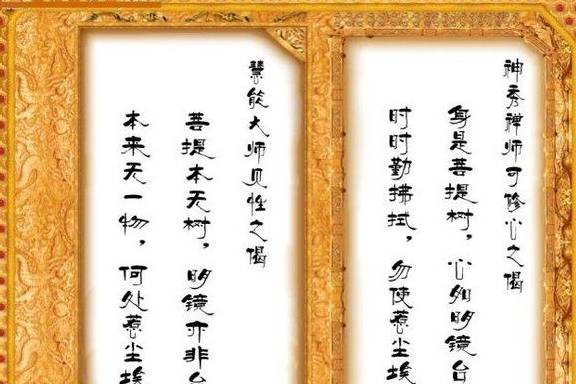 神秀禅师可修心之偈
身是菩提树，心如明镜台
时时勤拂拭，勿使惹尘埃
慧能大师见性之偈
菩提本无树，明镜亦非台
本来无一物，何处惹尘埃